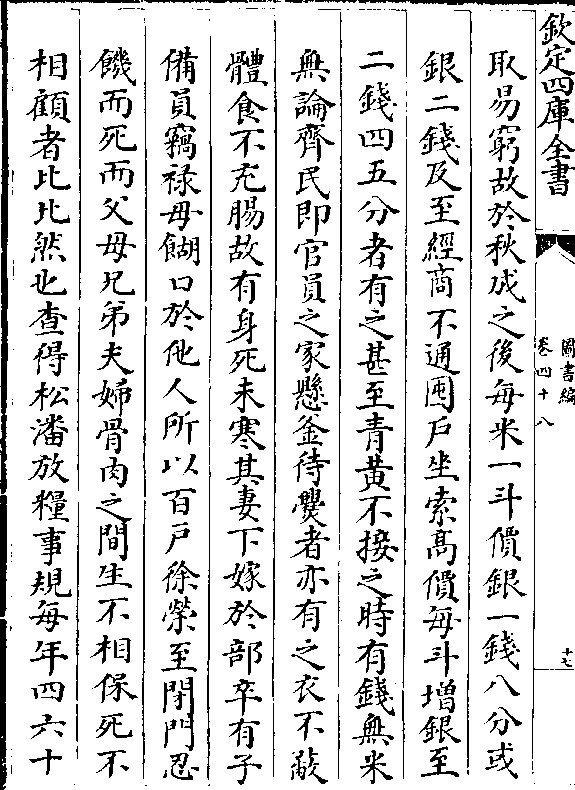 欽定四庫全書
圖書編
卷四十八
十七
取易窮故於秋成之後每米一斗價銀一錢八分或
銀二錢及至經商不通囤戶坐索髙價每斗增銀至
二錢四五分者有之甚至青黄不接之時有錢無米
無論齊民即官員之家懸釜待爨者亦有之衣不蔽
體食不充腸故有身死未寒其妻下嫁於部卒有子
備員竊禄母餬口於他人所以百戶徐榮至閉門忍
饑而死而父母兄弟夫婦骨肉之間生不相保死不
相顧者比比然也查得松潘放糧事規每年四六十